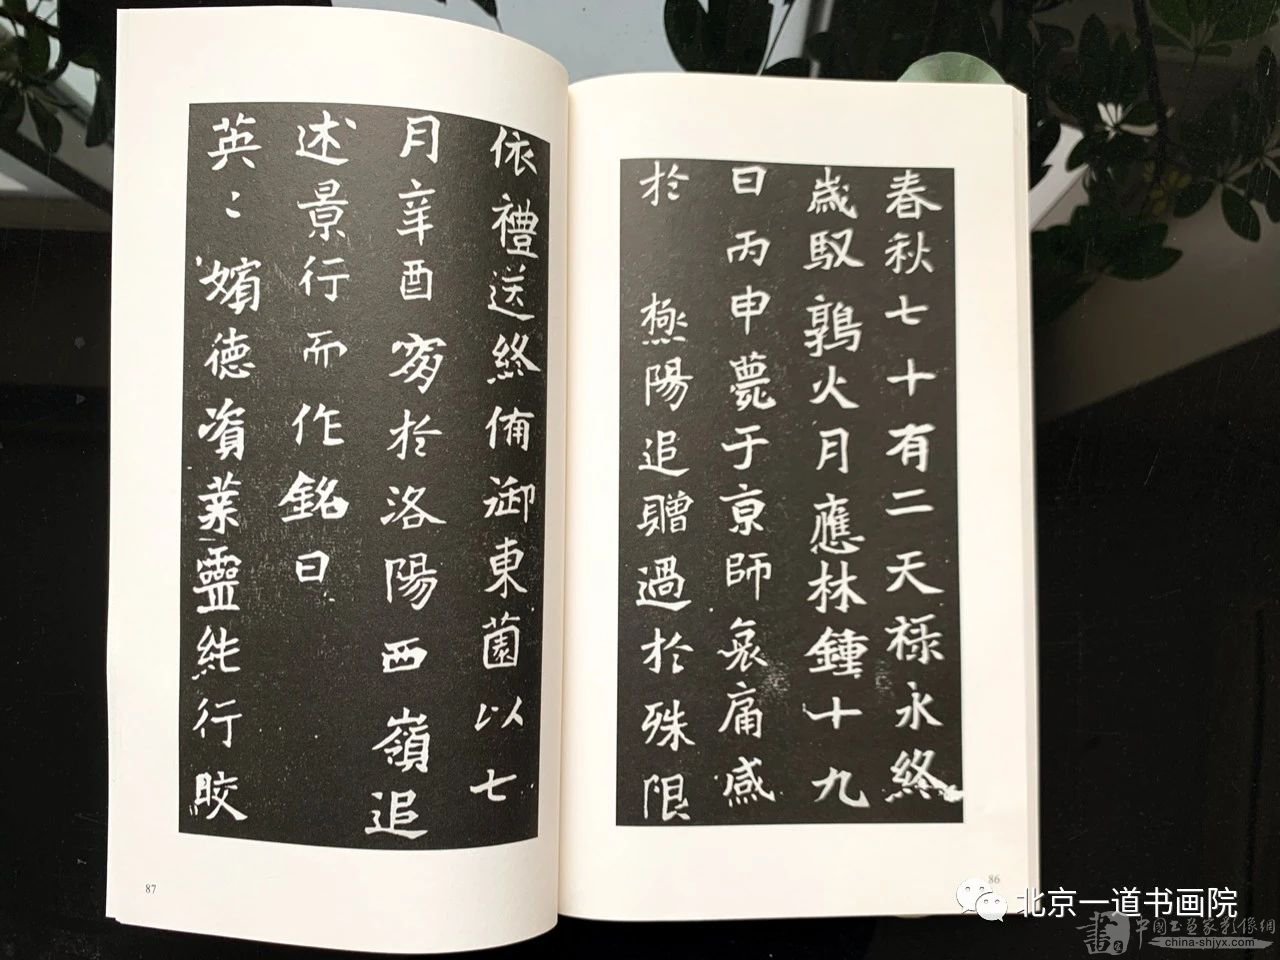 春秋七十有二天祿永終
歲馭鶉火月應林鍾十九
日丙申薨于京師哀痛感
於 極陽追贈過於殊限
86
依禮送終備御東薗以七
月辛酉窆於洛陽西嶺追
述景行而作銘曰
英〻嬪德資業靈純行皎
87
北京一道书画院
中國書畫家影像網
china-shjyx.com